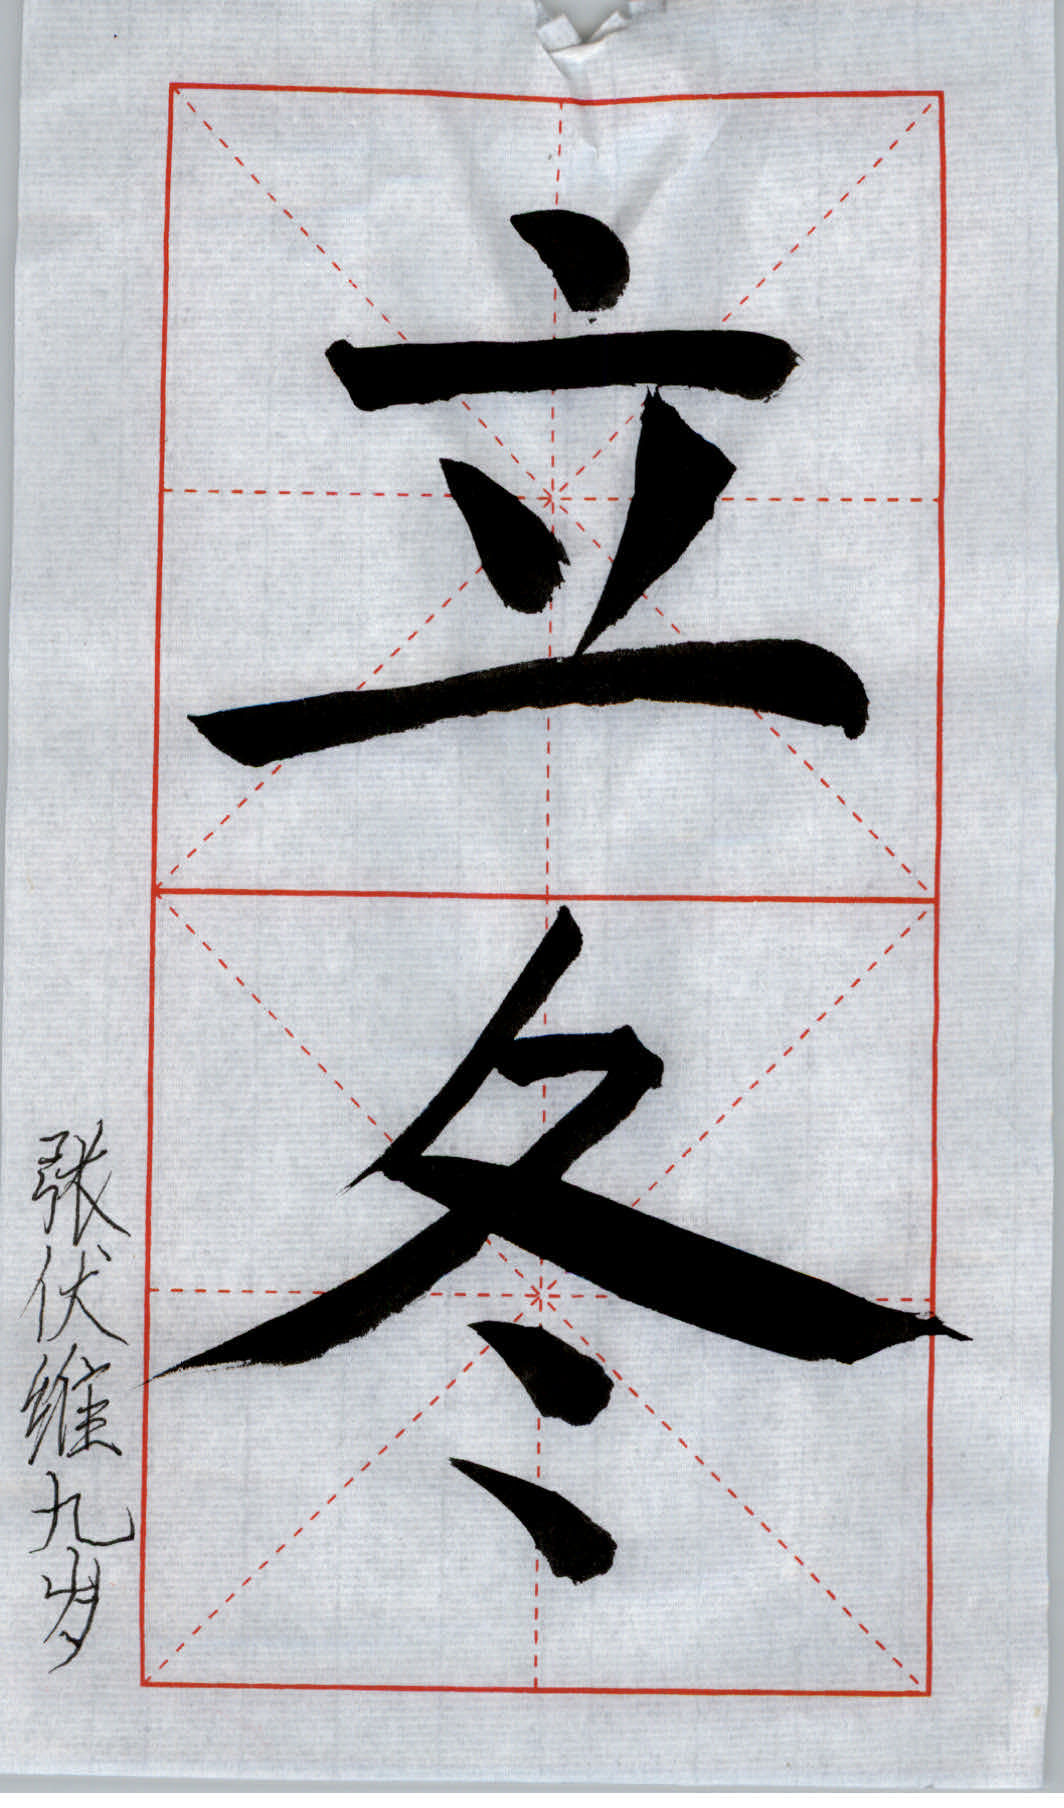 立冬
张伏维九岁